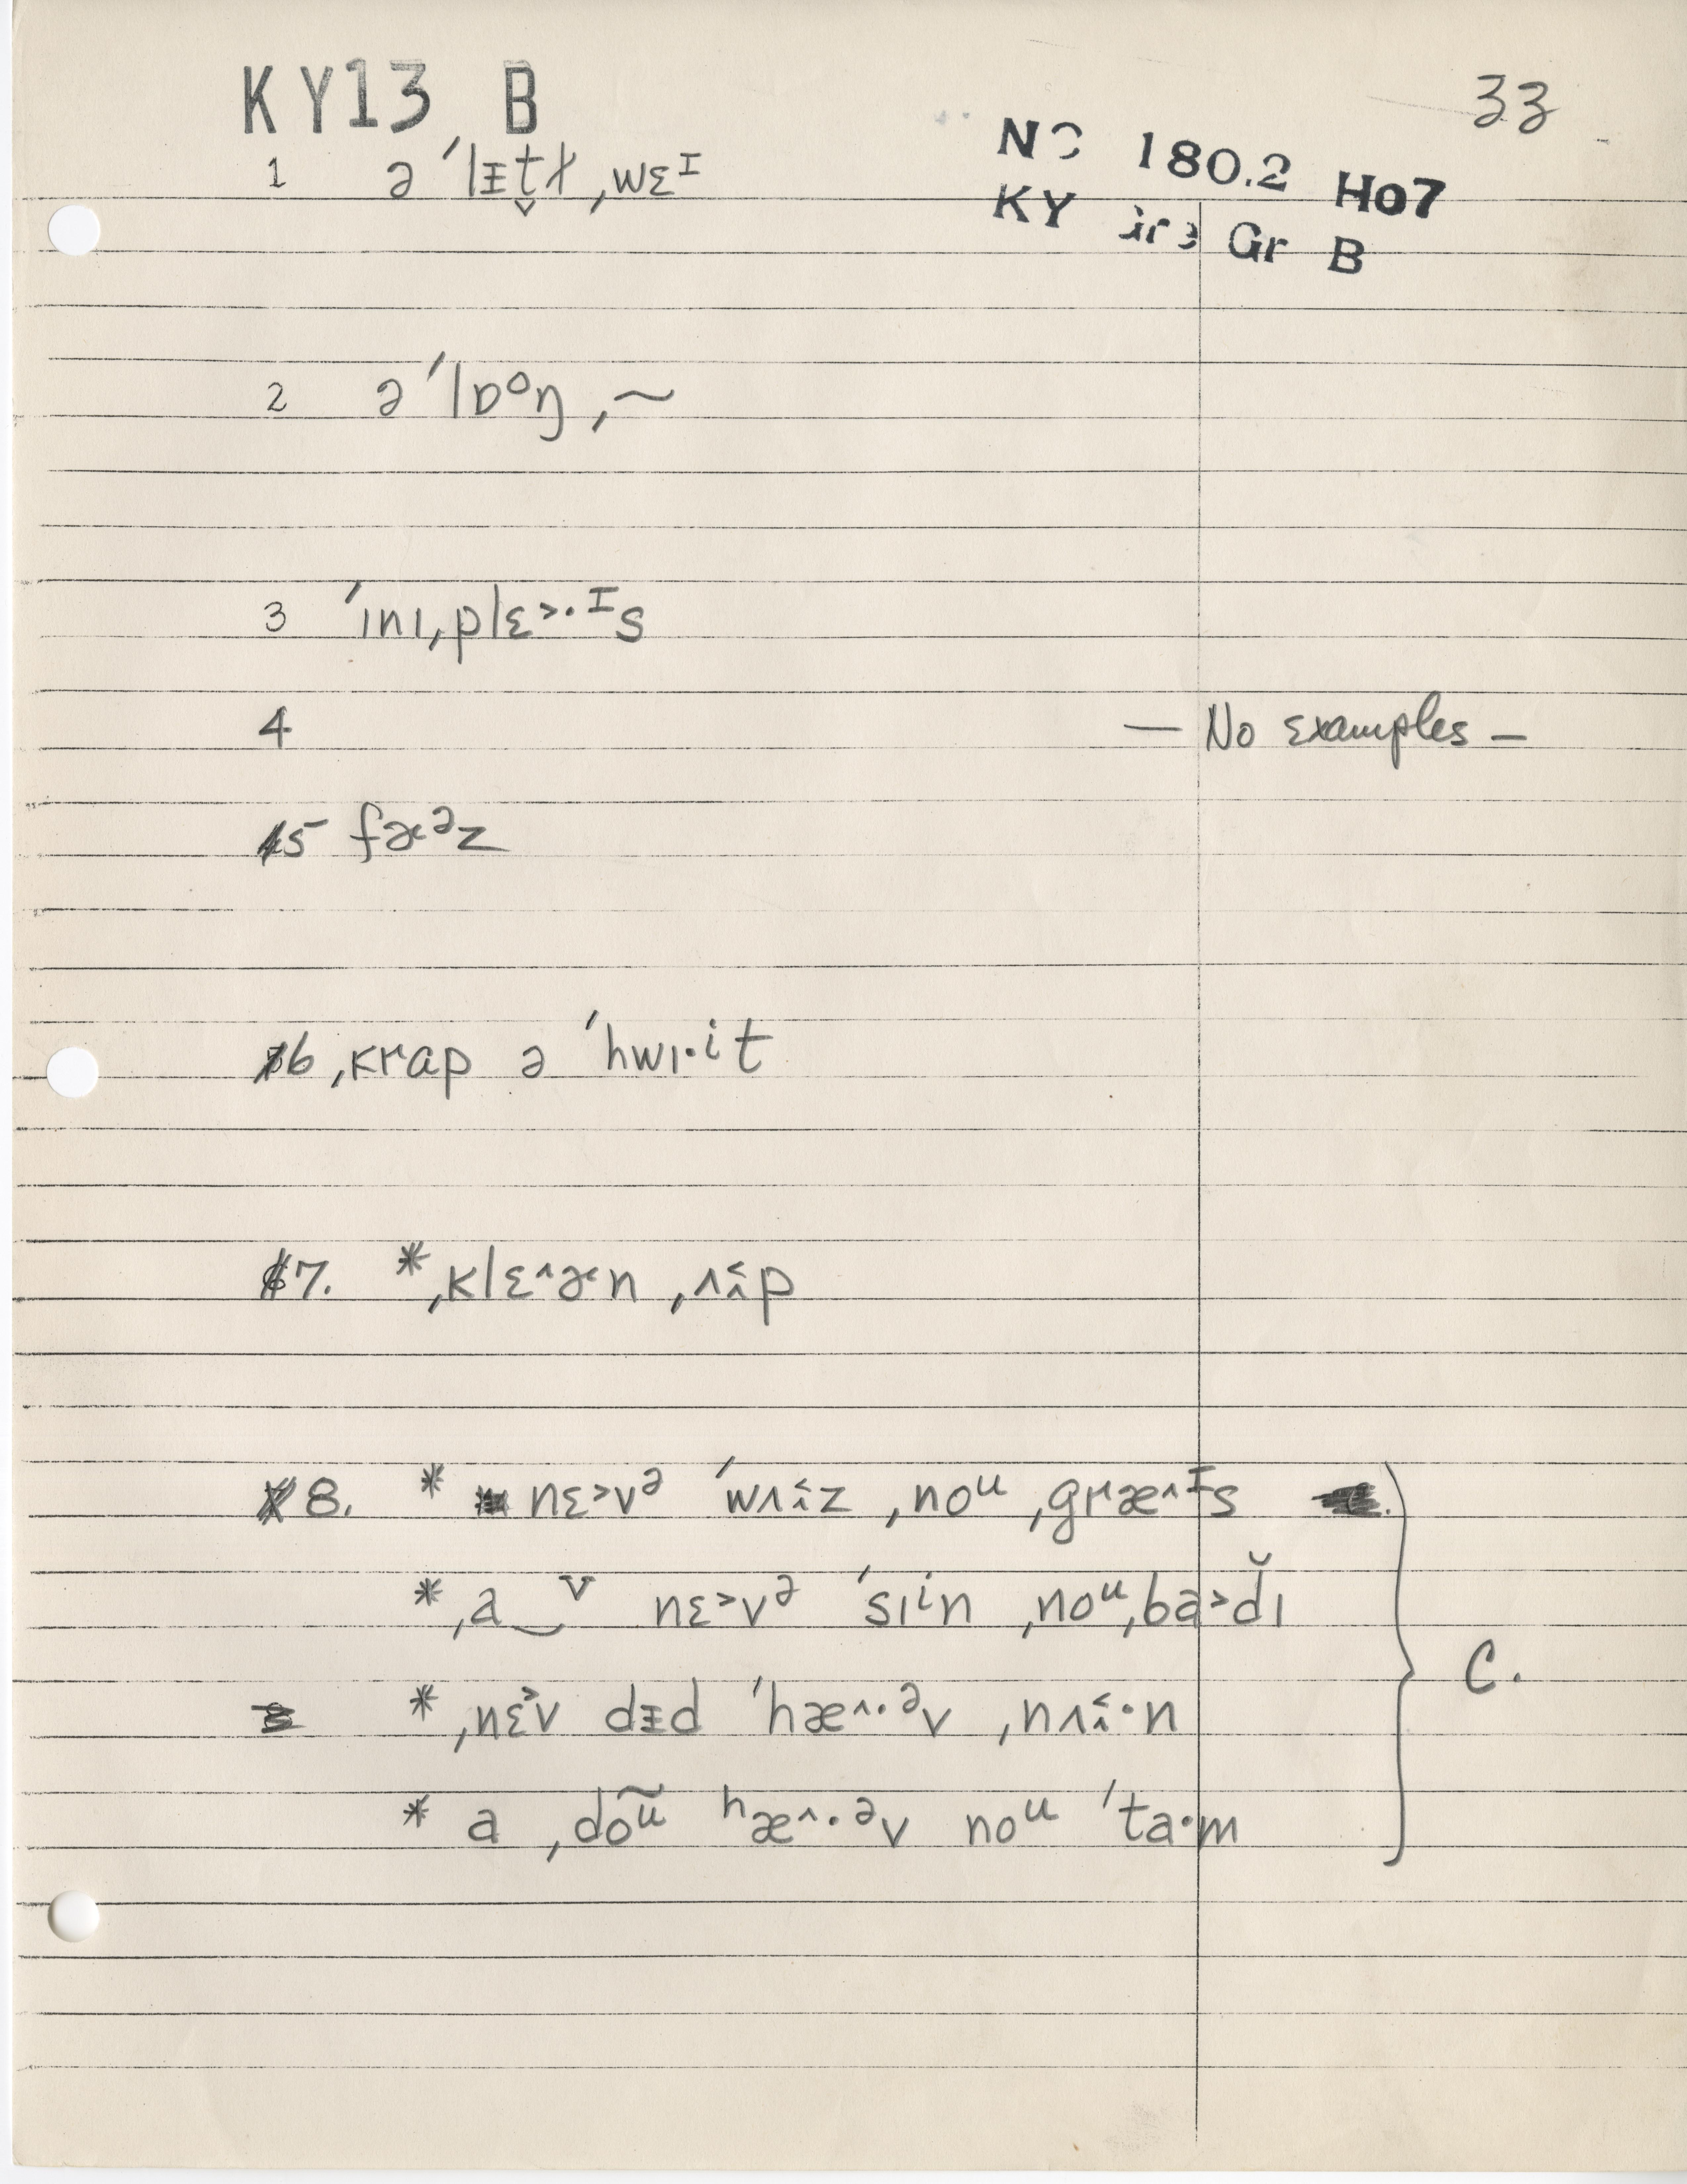 KY13 B
33
NC 180.2 H07
KY Gr B
1 ə ˈlᵻt̬ɫ ˌwɛᴵ
2 ə ˈlɒᵒŋ ,~
3 ˈɪnɪˌplɛ˃·ᴵs
4 — No examples —
5 fɚᵊz
6 ˌkrap ə ˈhwɪ·ⁱt
7. * ˌklɛ˄ɚn ˌʌɪ̂p
8. * nɛ˃vᵊ ˈwʌɪ̂z ˌnoᵘ ˌgræ˄ᴵs
* ˌa‿ᵛ nɛ˃vᵊ ˈsɪⁱn ˌnoᵘˌba˃d̆ɪ
* ˌnɛ˃v dᵻd ˈhæ˄·ᵊv ˌnʌɪ̂·n
* a ˌdoᵘ̃ ʰæ˄·ᵊv noᵘ ˈta·m
C.